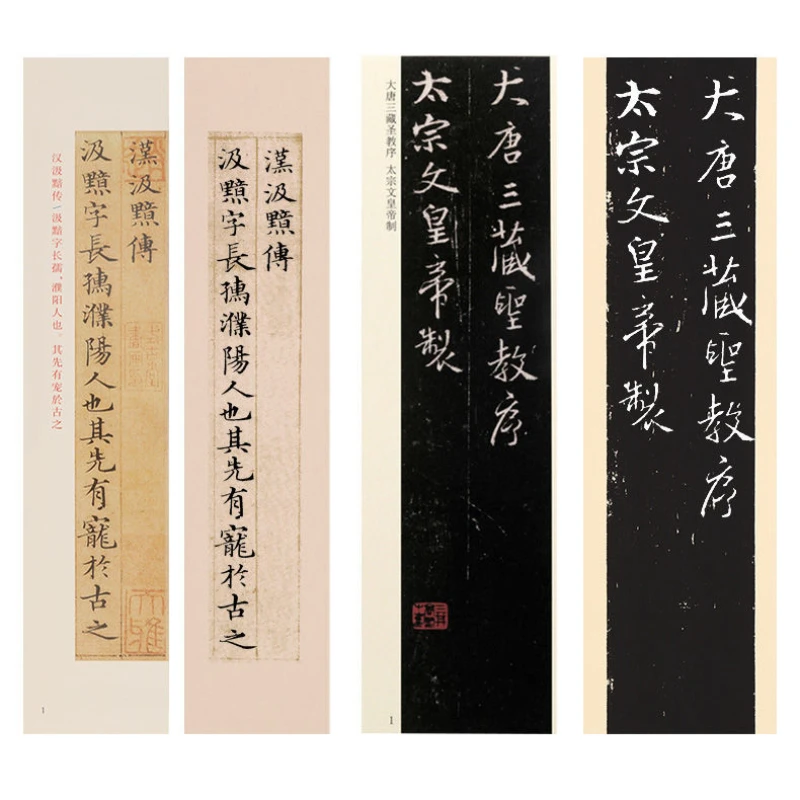 漢汲黯傳
汲黯字長孺濮陽人也其先有寵於古之
汉汲黯传/汲黯字长孺，濮阳人也。其先有宠於古之
1
漢汲黯傳
汲黯字長孺濮陽人也其先有寵於古之
大唐三藏聖教序
太宗文皇帝製
大唐三藏圣教序 太宗文皇帝制
1
大唐三藏聖教序
太宗文皇帝製